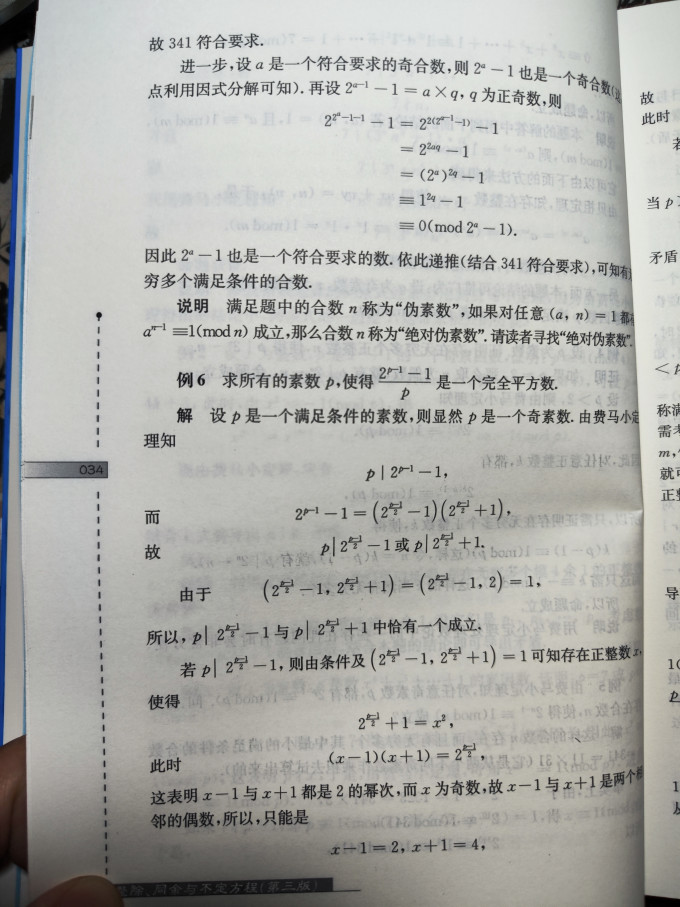 故 341 符合要求.
进一步,设 a 是一个符合要求的奇合数,则 2^a − 1 也是一个奇合数(
点利用因式分解可知). 再设 2^{a−1} − 1 = a × q, q 为正奇数,则
2^{2^a−1−1} − 1 = 2^{2(2^{a−1}−1)} − 1
= 2^{2aq} − 1
= (2^a)^{2q} − 1
≡ 1^{2q} − 1
≡ 0(mod 2^a − 1).
因此 2^a − 1 也是一个符合要求的数. 依此递推(结合 341 符合要求),可知有
穷多个满足条件的合数.
说明 满足题中的合数 n 称为“伪素数”,如果对任意 (a, n) = 1 都
a^{n−1} ≡ 1(mod n) 成立,那么合数 n 称为“绝对伪素数”. 请读者寻找“绝对伪素数”.
例 6 求所有的素数 p,使得 \frac{2^{p−1}−1}{p} 是一个完全平方数.
解 设 p 是一个满足条件的素数,则显然 p 是一个奇素数. 由费马小定
理知
p | 2^{p−1} − 1,
而 2^{p−1} − 1 = (2^{\frac{p−1}{2}} − 1)(2^{\frac{p−1}{2}} + 1),
故 p | 2^{\frac{p−1}{2}} − 1 或 p | 2^{\frac{p−1}{2}} + 1.
由于 (2^{\frac{p−1}{2}} − 1, 2^{\frac{p−1}{2}} + 1) = (2^{\frac{p−1}{2}} − 1, 2) = 1,
所以,p | 2^{\frac{p−1}{2}} − 1 与 p | 2^{\frac{p−1}{2}} + 1 中恰有一个成立.
若 p | 2^{\frac{p−1}{2}} − 1,则由条件及 (2^{\frac{p−1}{2}} − 1, 2^{\frac{p−1}{2}} + 1) = 1 可知存在正整数 x,
使得
2^{\frac{p−1}{2}} + 1 = x^2,
此时 (x − 1)(x + 1) = 2^{\frac{p−1}{2}},
这表明 x − 1 与 x + 1 都是 2 的幂次,而 x 为奇数,故 x − 1 与 x + 1 是两个相
邻的偶数,所以,只能是
x − 1 = 2, x + 1 = 4,
034
整除、同余与不定方程(第三版)
故
此时
当 p
矛盾
称满
需考
m,
就可
正整
导